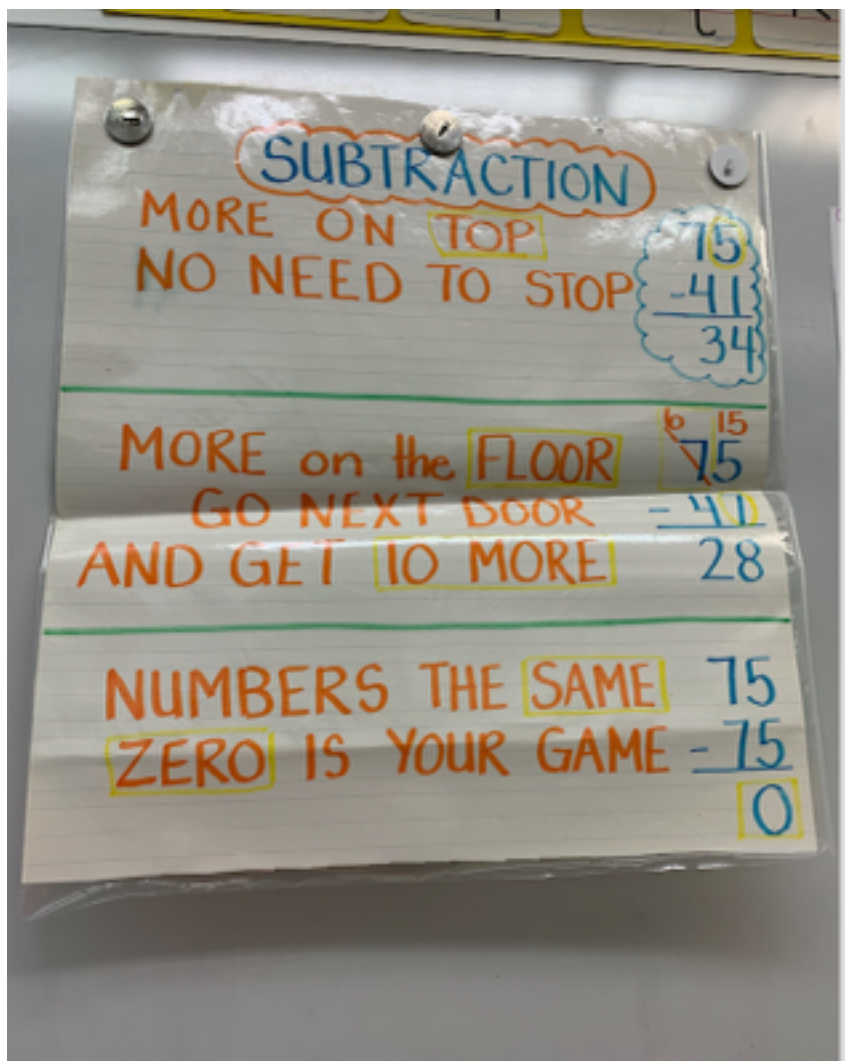 SUBTRACTION
MORE ON TOP 75
NO NEED TO STOP -41
34
6 15
MORE on the FLOOR 75
GO NEXT DOOR - 47
AND GET 10 MORE 28
NUMBERS THE SAME 75
ZERO IS YOUR GAME - 75
0